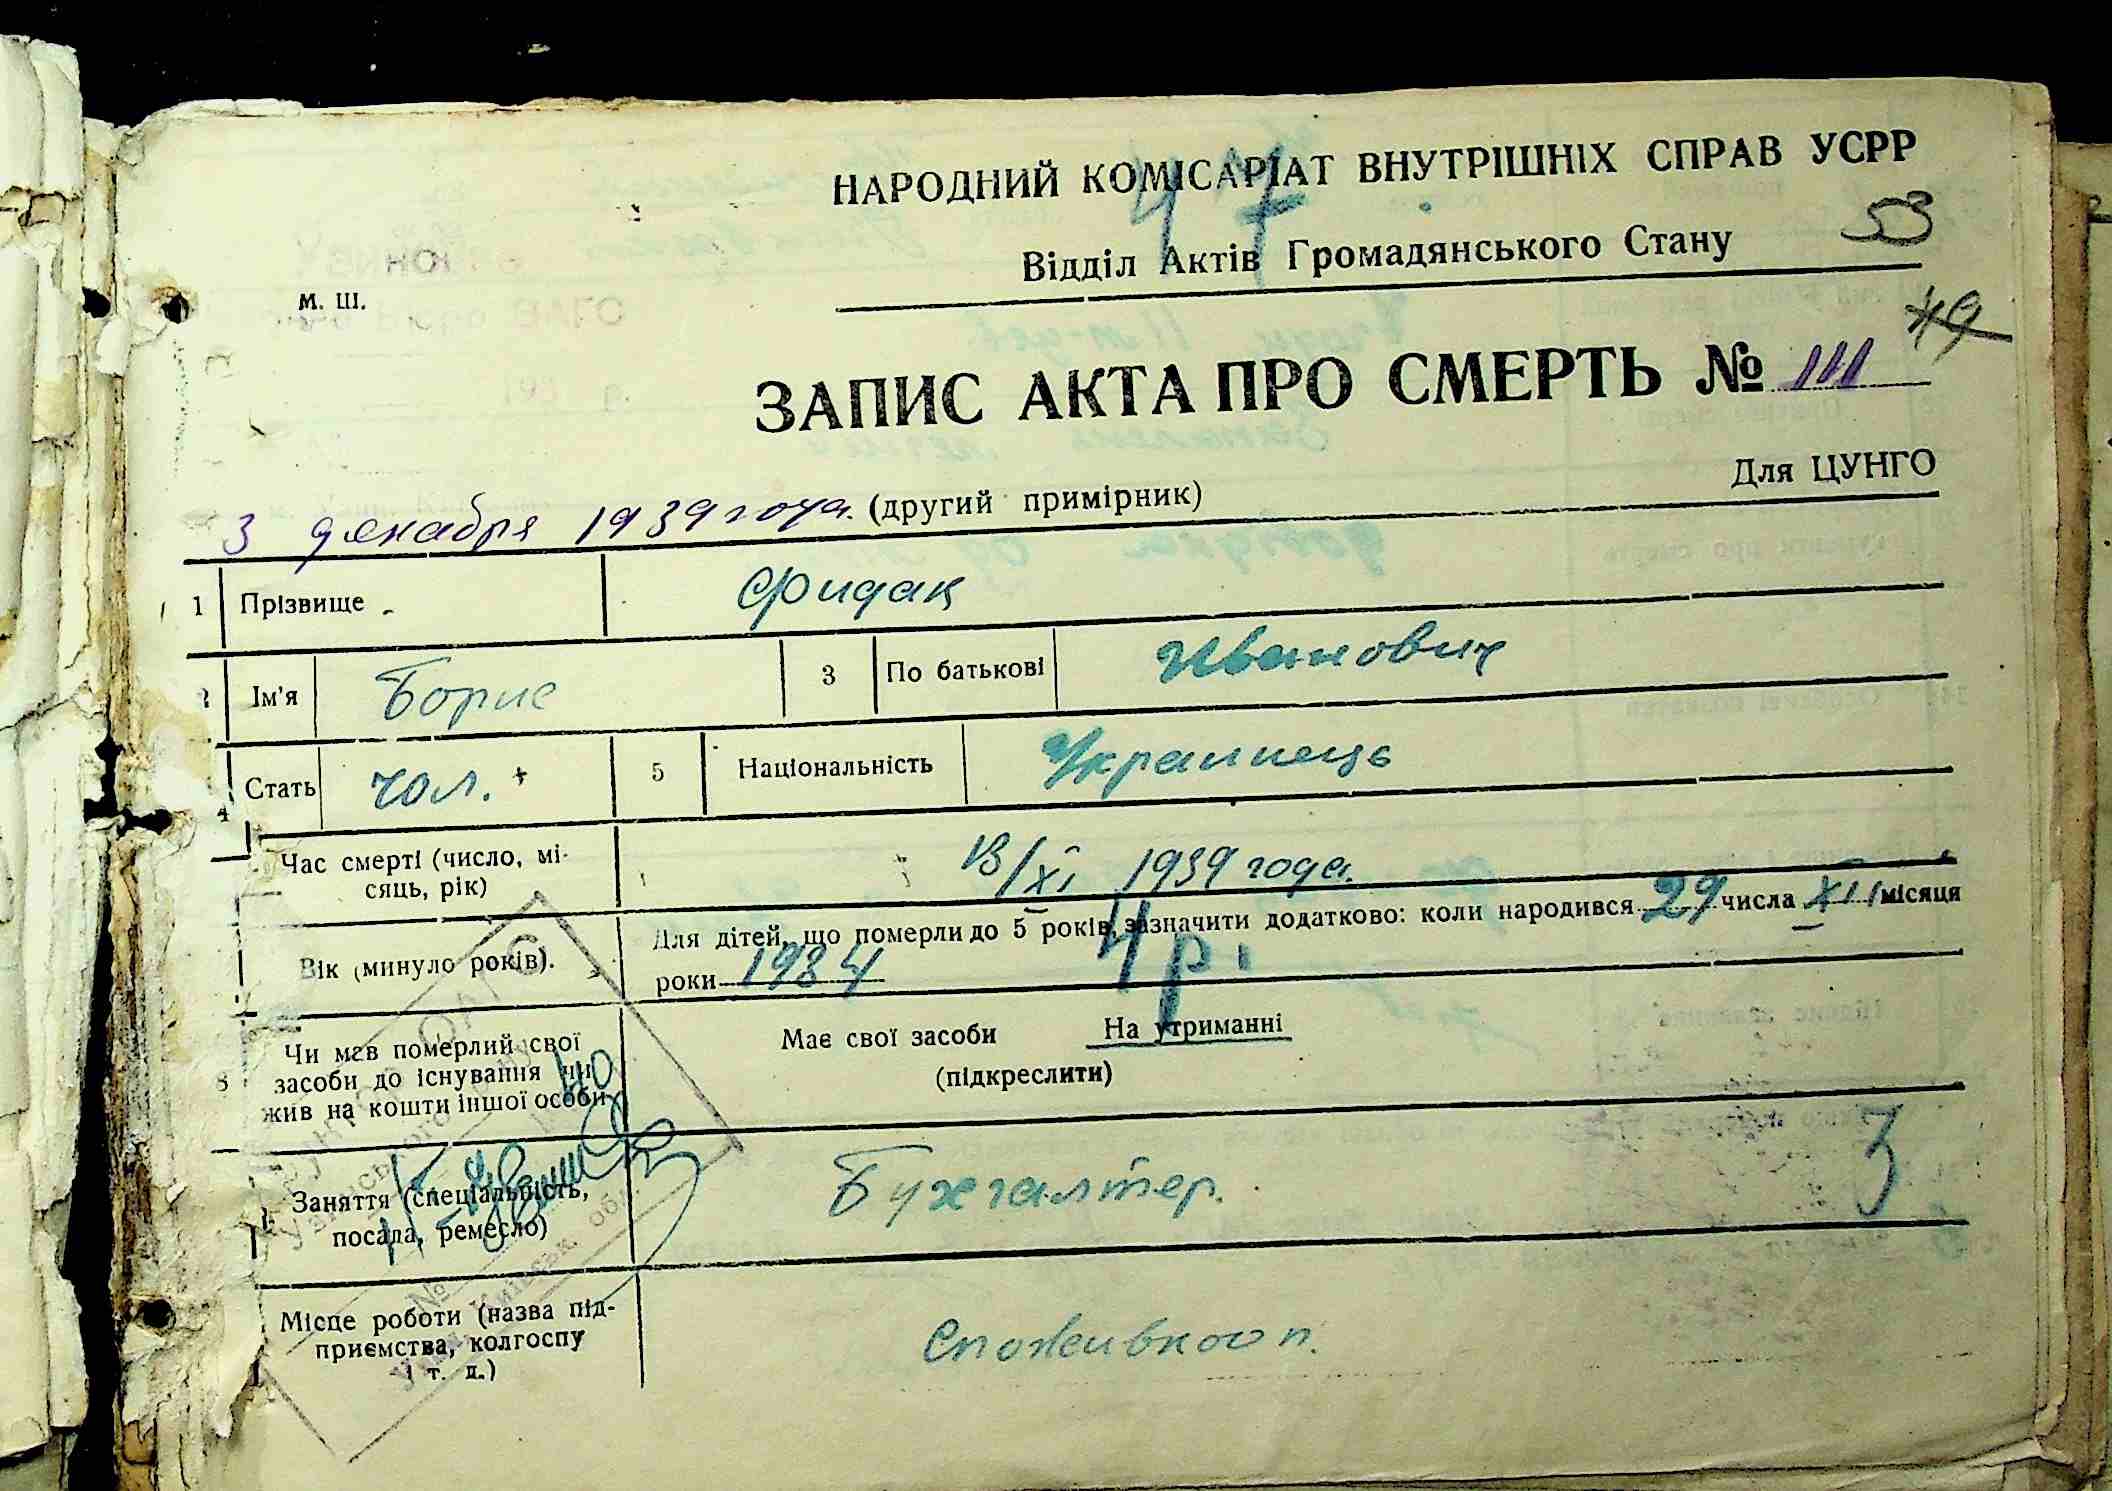 НАРОДНИЙ КОМІСАРІАТ ВНУТРІШНІХ СПРАВ УСРР
47
53
Відділ Актів Громадянського Стану
М. Ш.
49
ЗАПИС АКТА ПРО СМЕРТЬ № 111
Для ЦУНГО
3 декабря 1939 года. (другий примірник)
1 Прізвище Фридак
2 Ім'я Борис 3 По батькові Иванович
4 Стать чол. 5 Національність Украинець
Час смерті (число, мі-
сяць, рік)
13/XI 1939 года.
Вік (минуло років).
Для дітей, що померли до 5 років, зазначити додатково: коли народився 29 числа XII місяця
роки 1934 4 р.
8 Чи мав померлий свої
засоби до існування чи
жив на кошти іншої особи
Має свої засоби На утриманні
(підкреслити)
Заняття (спеціальність,
посада, ремесло)
Бухгалтер. 3
Місце роботи (назва під-
приємства, колгоспу
і т. д.)
Споживкооп.